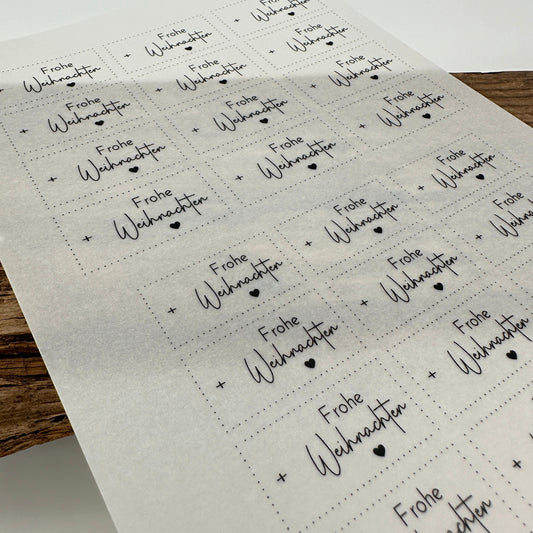 Weihnachten
Frohe
Weihnachten
Frohe
Weihnachten
Frohe
Weihnachten
Frohe
Weihnachten
Frohe
Weihnachten
Frohe
Weihnachten
Frohe
Weihnachten
Frohe
Weihnachten
Frohe
Weihnachten
Frohe
Weihnachten
Frohe
Weihnachten
Frohe
Weihnachten
Frohe
Weihnachten
Frohe
Weihnachten
Frohe
Weihnachten
Frohe
Weihnachten
Frohe
Weihnachten
Frohe
Weihnachten
Frohe
Weihnachten
Frohe